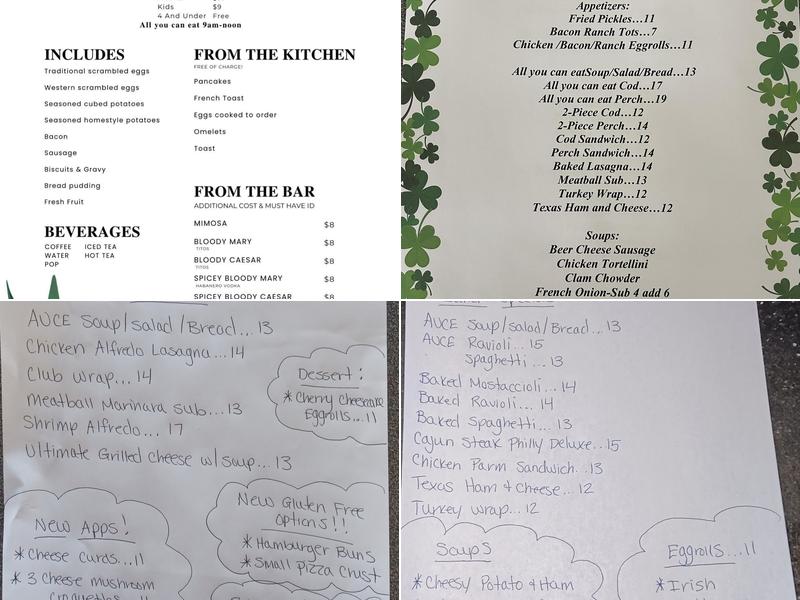 Kids $9
4 And Under Free
All you can eat 9am-noon
INCLUDES
Traditional scrambled eggs
Western scrambled eggs
Seasoned cubed potatoes
Seasoned homestyle potatoes
Bacon
Sausage
Biscuits & Gravy
Bread pudding
Fresh Fruit
BEVERAGES
COFFEE ICED TEA
WATER HOT TEA
POP
FROM THE KITCHEN
FREE OF CHARGE!
Pancakes
French Toast
Eggs cooked to order
Omelets
Toast
FROM THE BAR
ADDITIONAL COST & MUST HAVE ID
MIMOSA $8
BLOODY MARY $8
TITOS
BLOODY CAESAR $8
TITOS
SPICEY BLOODY MARY $8
HABANERO VODKA
SPICEY BLOODY CAESAR $8
Appetizers:
Fried Pickles...11
Bacon Ranch Tots...7
Chicken /Bacon/Ranch Eggrolls...11
All you can eatSoup/Salad/Bread...13
All you can eat Cod...17
All you can eat Perch...19
2-Piece Cod...12
2-Piece Perch...14
Cod Sandwich...12
Perch Sandwich...14
Baked Lasagna...14
Meatball Sub...13
Turkey Wrap...12
Texas Ham and Cheese...12
Soups:
Beer Cheese Sausage
Chicken Tortellini
Clam Chowder
French Onion-Sub 4 add 6
AUCE Soup/Salad/Bread... 13
Chicken Alfredo Lasagna... 14
Club Wrap... 14
Meatball Marinara Sub... 13
Shrimp Alfredo... 17
Ultimate Grilled Cheese w/ Soup... 13
Dessert:
* Cherry Cheesecake
Eggrolls...11
New Apps!
* Cheese Curds...11
* 3 Cheese Mushroom
Croquettes
New Gluten Free
Options!!
* Hamburger Buns
* Small Pizza Crust
AUCE Soup/Salad/Bread... 13
AUCE Ravioli... 15
Spaghetti... 13
Baked Mostaccioli... 14
Baked Ravioli... 14
Baked Spaghetti... 13
Cajun Steak Philly Deluxe...15
Chicken Parm Sandwich...13
Texas Ham & Cheese... 12
Turkey Wrap... 12
Soups
* Cheesy Potato & Ham
Eggrolls...11
* Irish